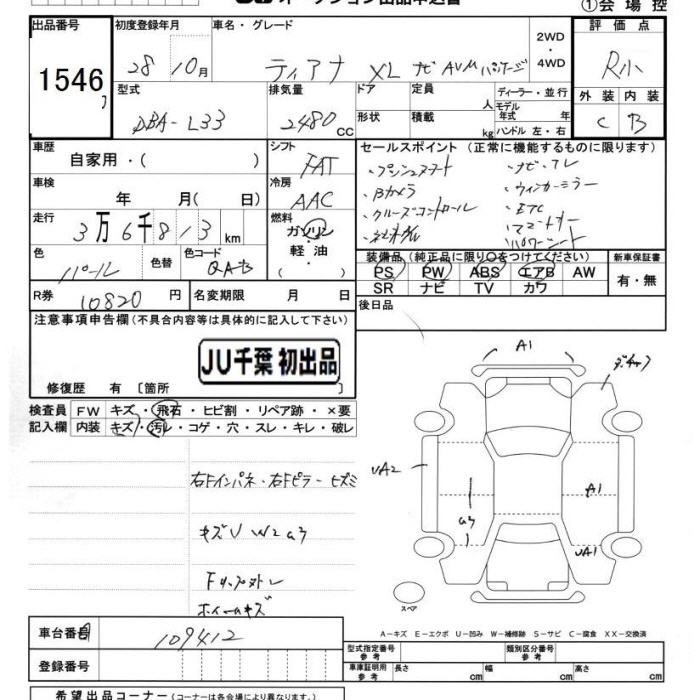 ①会場控
出品番号
1546
初度登録年月
28 10月
車名・グレード
ティアナ XL ナビAVMパッケージ
2WD
・
4WD
評価点
R小
型式
DBA-L33
排気量
2480 CC
ドア
形状
定員 人
積載 kg
ディーラー・並行
モデル
年式 年
ハンドル 左・右
外装 内装
C B
車歴
自家用・( )
シフト
FAT
車検
年 月( 日)
冷房
AAC
走行
3万6千813 km
燃料
ガソリン
・
軽油
( )
色
パール
色替
色コード
QAB
R券 10820 円
名変期限 月 日
セールスポイント (正常に機能するものに限ります)
・プッシュスタート ・ナビ・TV
・Bカメラ ・ウィンカーミラー
・クルーズコントロール ・ETC
装備品(純正品に限り○をつけてください)
PS PW ABS エアB AW
SR ナビ TV カワ
新車保証書
有・無
後日品
注意事項申告欄(不具合内容等は具体的に記入して下さい)
JU千葉 初出品
修復歴 有 〔箇所
検査員 FW キズ・飛石・ヒビ割・リペア跡・×要
記入欄 内装 キズ・汚レ・コゲ・穴・スレ・キレ・破レ
右Fインパネ・右Fピラー ヒズミ
キズU W2 a3
ホイールキズ
A1
UA2
A1
a3
UA1
スペア
A-キズ E-エクボ U-凹み W-補修跡 S-サビ C-腐食 XX-交換済
車台番号 109412
登録番号
型式指定番号
参考
類別区分番号
参考
車庫証明用
参考
長さ cm 幅 cm 高さ cm
希望出品コーナー(コーナーは各会場で異なります。)